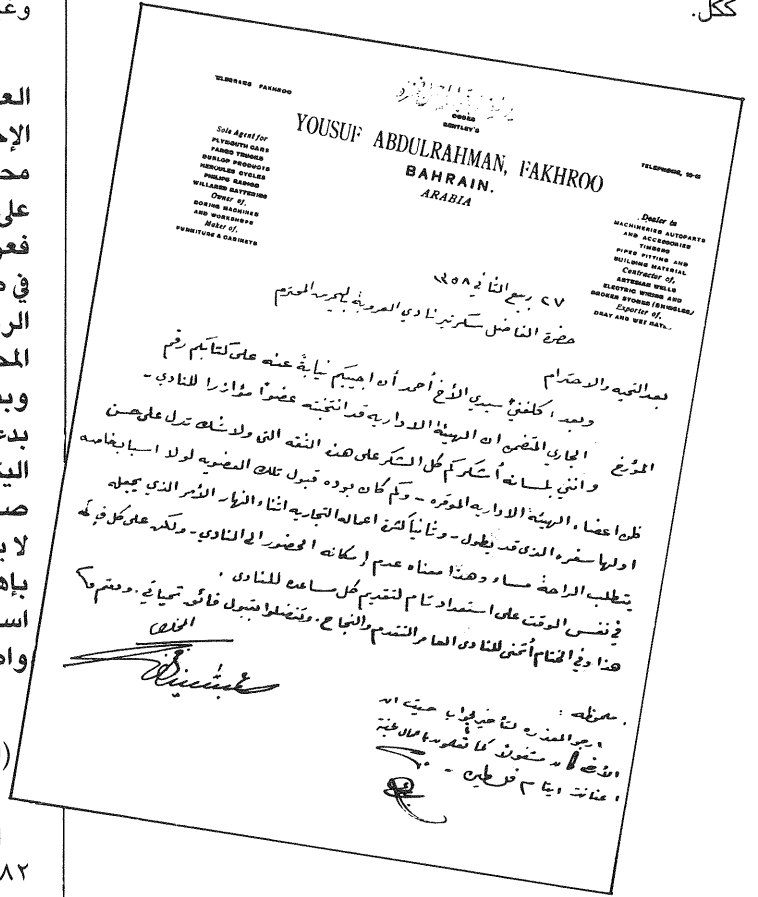 ككل.
TELEGRAMS FAKHROO
CODES
BENTLEY'S
YOUSUF ABDULRAHMAN, FAKHROO
BAHRAIN.
ARABIA
TELEPHONE,
Sole Agent for
PLYMOUTH CARS
FARGO TRUCKS
DUNLOP PRODUCTS
HERCULES CYCLES
PHILIPS RADIOS
WILLARD BATTERIES
Owner of,
BORING MACHINES
AND WORKSHOPS
Maker of,
FURNITURE & CABINETS
Dealer in
MACHINERIES AUTOPARTS
AND ACCESSORIES
TIMBERS
PIPES FITTING AND
BUILDING MATERIAL
Contractor of,
ARTESIAN WELLS
ELECTRIC WIRING AND
BROKEN STONES (SHINGLES)
Exporter of,
DRAY AND WET DATES.
٢٧ ربيع الثاني ١٣٥٨
حضرة الفاضل سكرتير نادي العروبة بالبحرين المحترم
بعد التحية والاحترام
وبعد، كلفني سيدي الأخ أحمد أن اجيبكم نيابة عنه على كتابكم رقم
المؤرخ الجاري المتضمن ان الهيئة الادارية قد انتخبته عضوا مؤازرا للنادي -
وانني بلسانه أشكركم كل الشكر على هذه الثقه التي ولا شك تدل على حسن
ظن اعضاء الهيئة الاداريه الموقره - وكم كان بوده قبول تلك العضويه لولا اسباب خاصه
اولها سفره الذي قد يطول - وثانيا كثرة اعماله التجاريه اثناء النهار الأمر الذي يجعله
يتطلب الراحة مساء وهذا معناه عدم إمكانه الحضور الى النادي - ولكن على كل فإنه
في نفس الوقت على استعداد تام لتقديم كل مساعده للنادي.
هذا وفي الختام أتمنى للنادي العامر التقدم والنجاح. وتفضلوا بقبول فائق تحياتي. ودمتم
المخلص
ملحوظه:
ارجو المعذره لتأخير الجواب حيث ان
الأخ كان مشغولا كما تعلمون باعمال
اعانة ايتام فلسطين -
وغ
الع
الإ
مح
على
فع
في
الر
الم
وب
بد
ال
ص
لا
بإ
اس
وا
٨٢